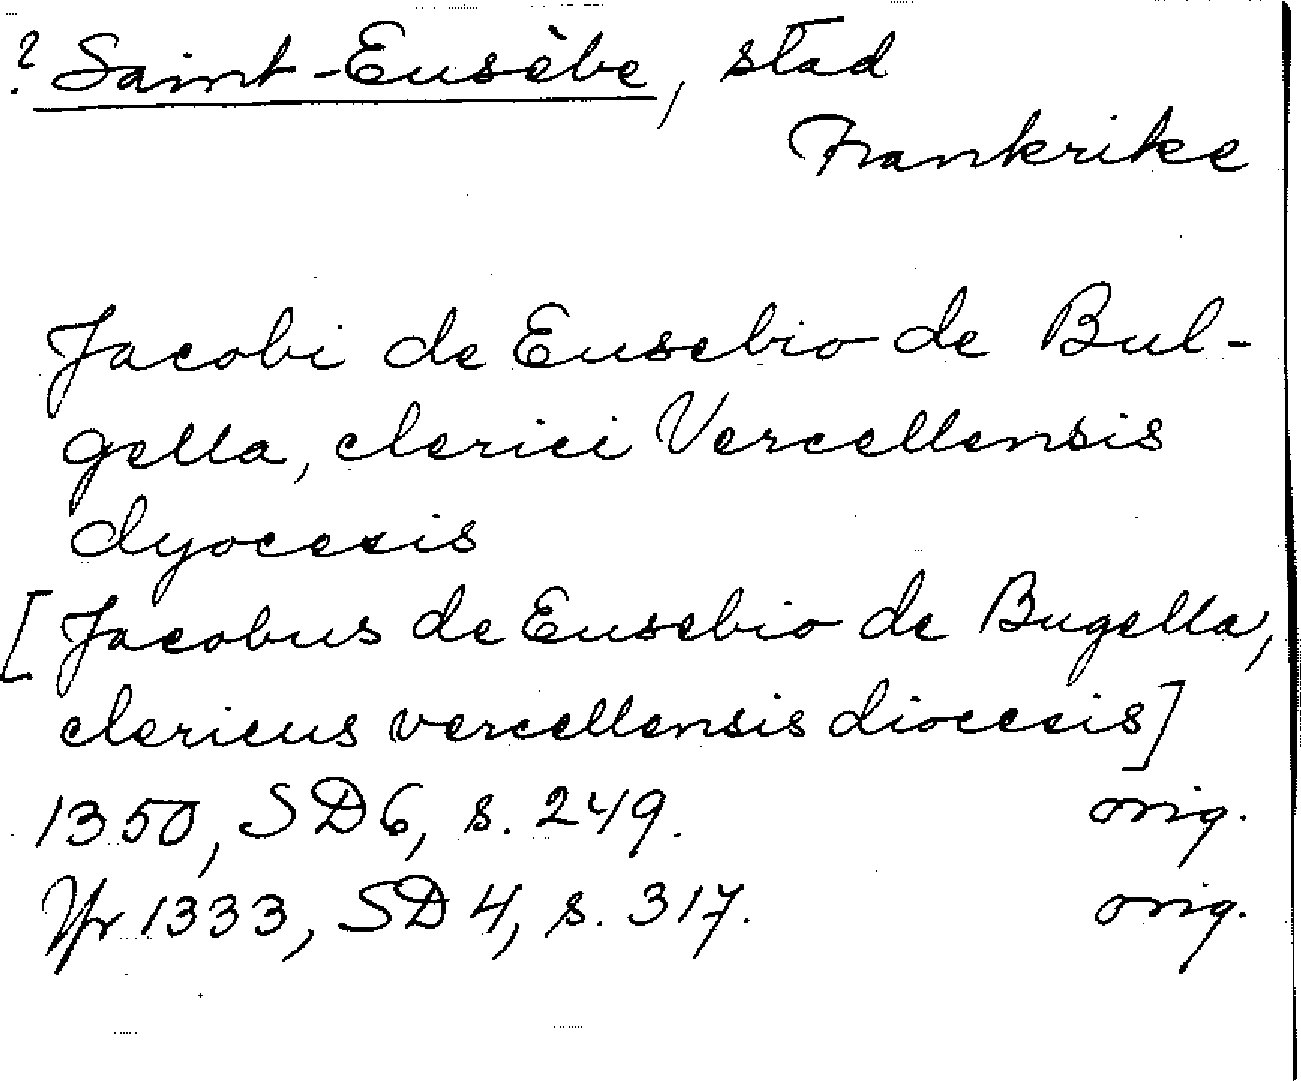 ? Saint-Eusèbe, stad
Frankrike
Jacobi de Eusebio de Bul-
gella, clerici Vercellensis
dyocesis
[Jacobus de Eusebio de Bugella,
clericus vercellensis diocesis]
1350, SD 6, s. 249. orig.
Jfr 1333, SD 4, s. 317. orig.